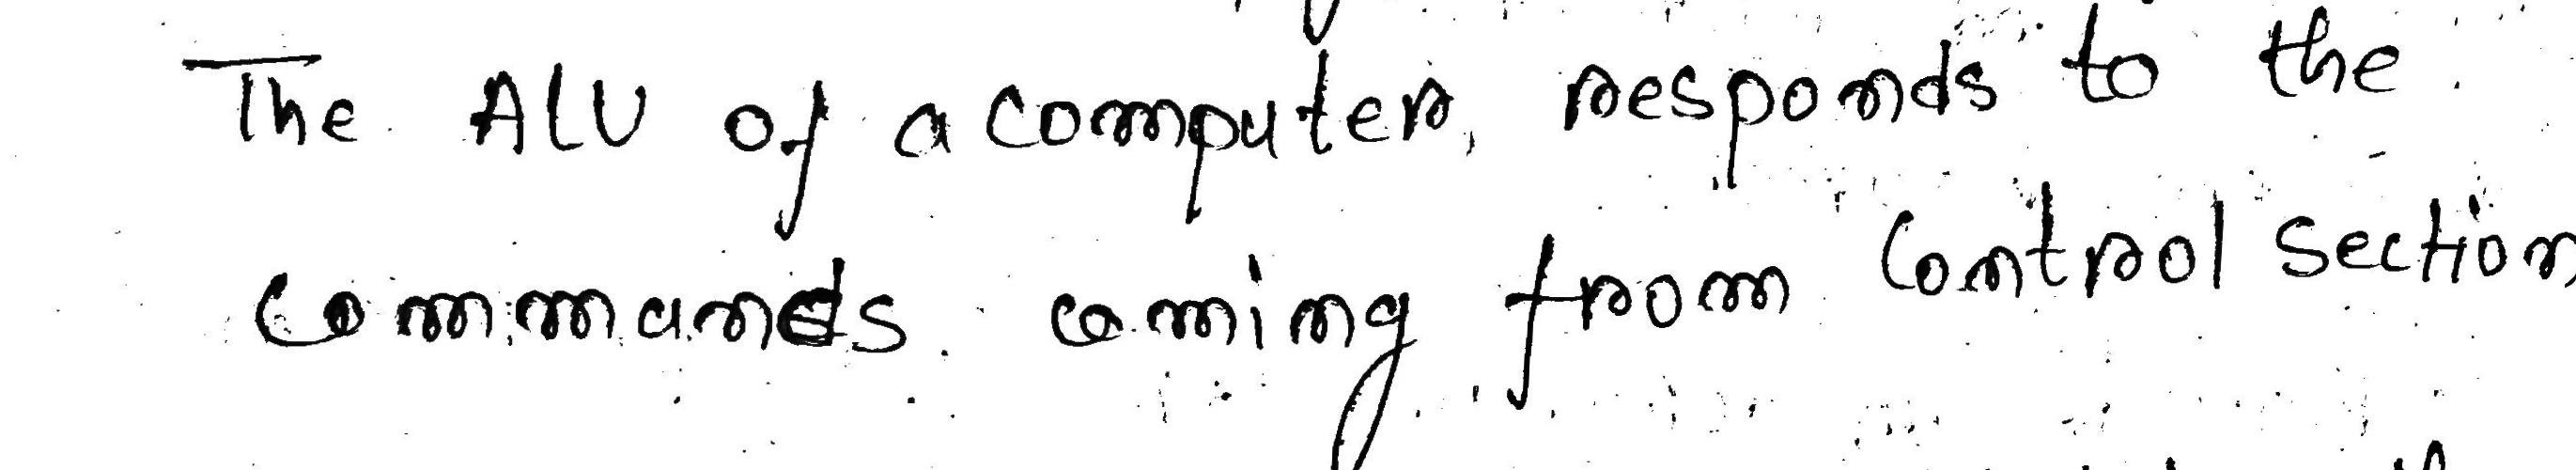 The ALU of a computer, responds to the
commands coming from Control section